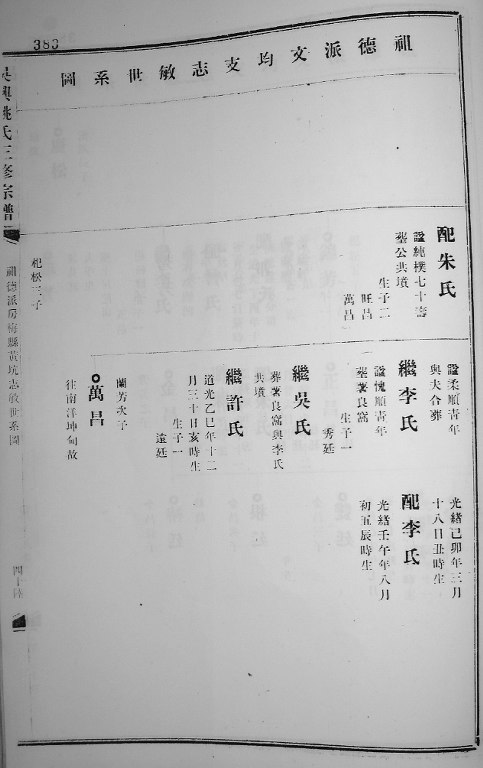 383
祖德派文均支志敏世系圖
配朱氏
諡純樸七十壽
塟公共墳
生子二
旺昌
萬昌
諡柔順青年
與夫合葬
繼李氏
諡愧順青年
塟薯良窩
生子一
秀廷
繼吳氏
葬薯良窩與李氏
共墳
繼許氏
道光乙巳年十二
月三十日亥時生
生子一
遠廷
蘭芳次子
萬昌
往南洋坤甸故
祀松三子
光緒己卯年三月
十八日丑時生
配李氏
光緒壬午年八月
初五辰時生
吳興姚氏三修宗譜
祖德派房梅縣黃坑志敏世系圖